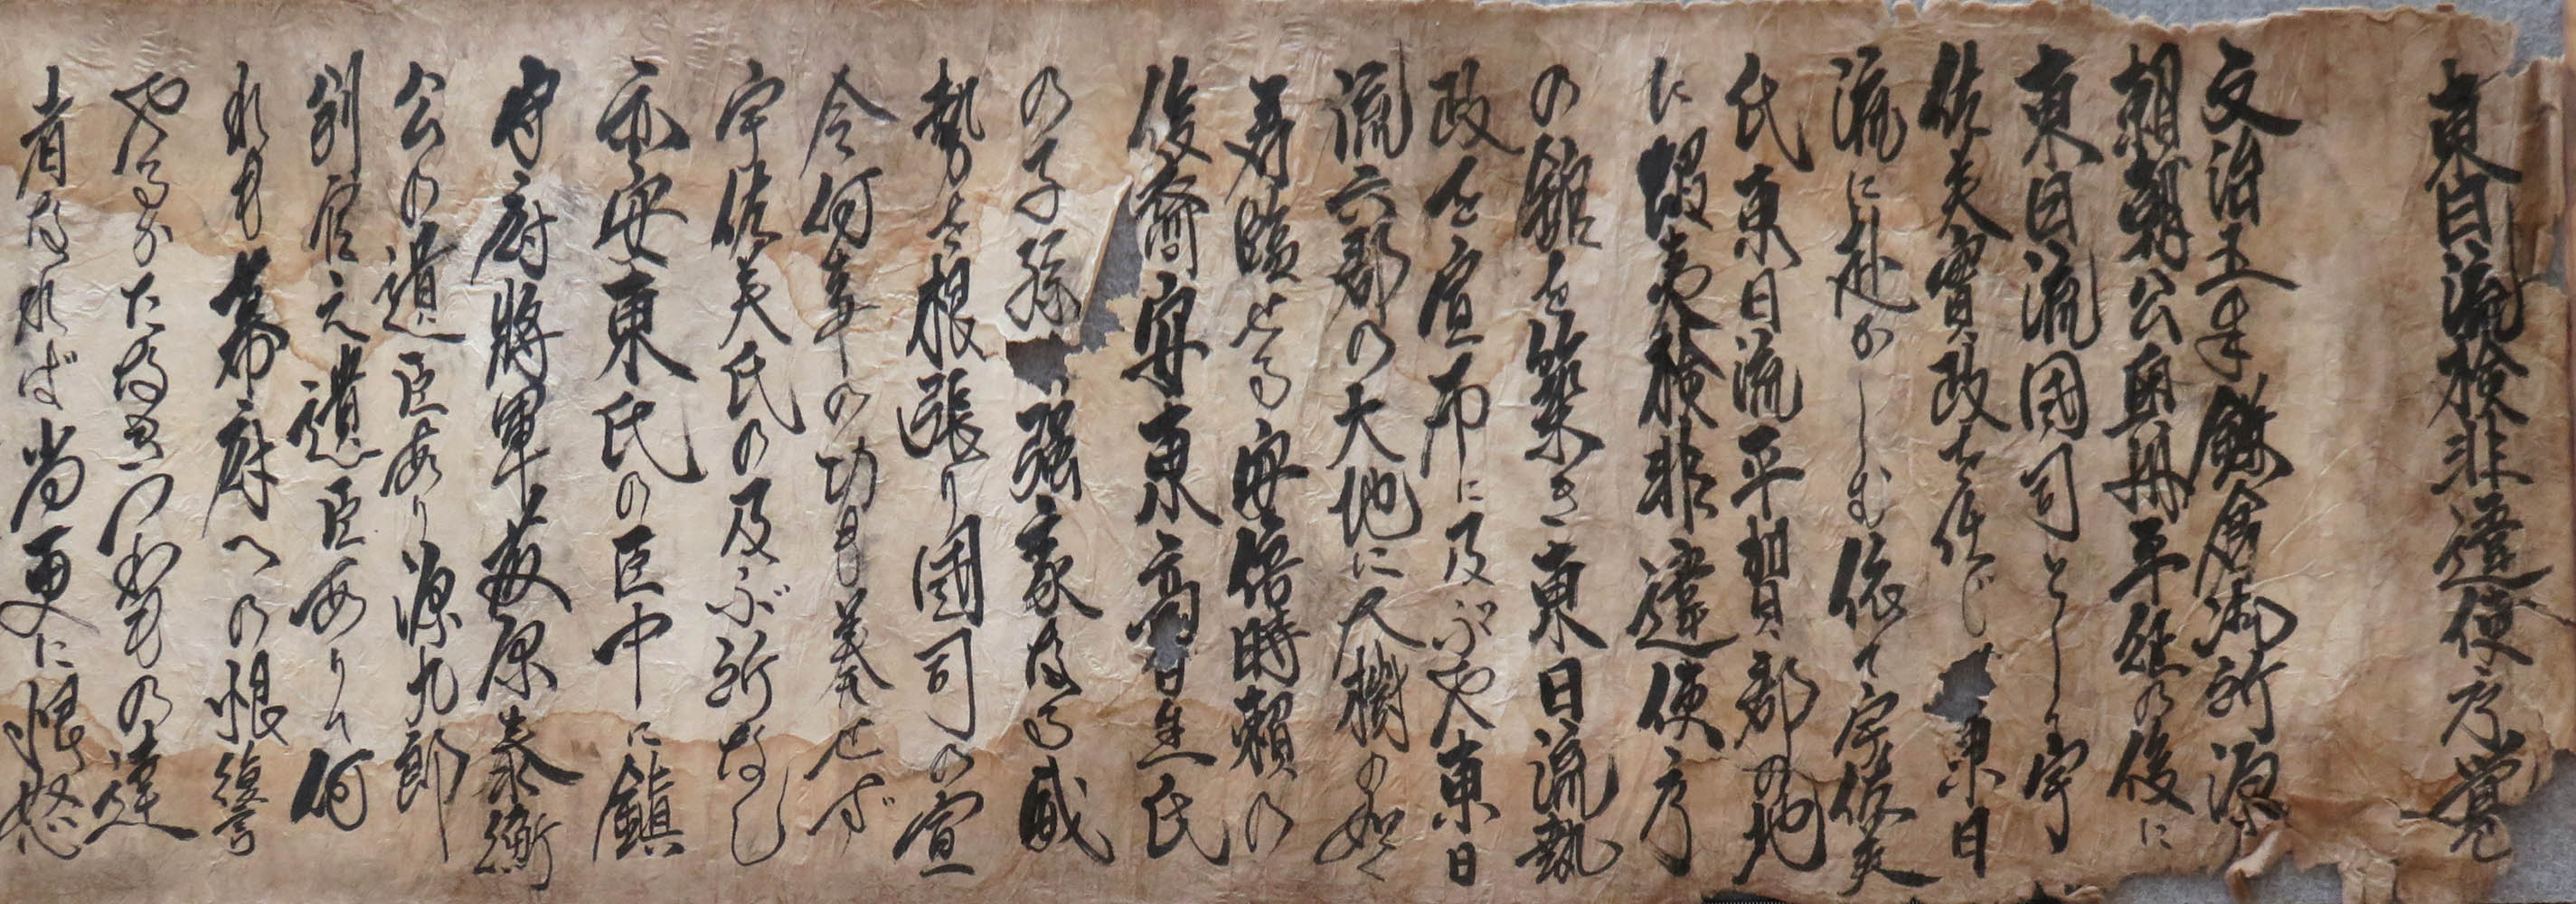 東日流検非違使庁覚
文治五年鎌倉御所源
頼朝公奥州平征の後に
東日流國司として宇
佐美實政を任じ東日
流に赴かしむ依て宇佐美
氏東日流平賀郡の地
に蝦夷検非違使庁
の舘を築き東日流執
政を宣布に及ぶや東日
流六郡の大地に大樹の如く
君臨せる安倍時頼の
後裔安東高星氏
の子孫強豪なる威
勢を根張り國司の宣
令何事の功も奏せず
宇佐美氏の及ぶ所なし
亦安東氏の臣中に鎮
守府將軍藤原泰衡
公の遺臣あり源九郎
判官之遺臣ありて何
れも幕府への恨復讐
やるかたなき つわもの達
者なれば尚更に恨怒